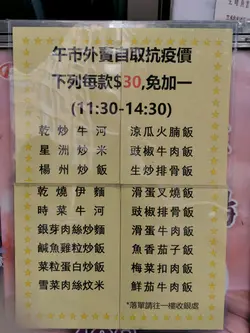 午市外賣自取抗疫價
下列每款$30,免加一
(11:30-14:30)
乾炒牛河
星洲炒米
楊州炒飯
涼瓜火腩飯
豉椒牛肉飯
生炒排骨飯
乾燒伊麵
時菜牛河
銀芽肉絲炒麵
鹹魚雞粒炒飯
菜粒蛋白炒飯
雪菜肉絲炆米
滑蛋叉燒飯
豉椒排骨飯
滑蛋牛肉飯
魚香茄子飯
梅菜扣肉飯
鮮茄牛肉飯
*落單請往一樓收銀處